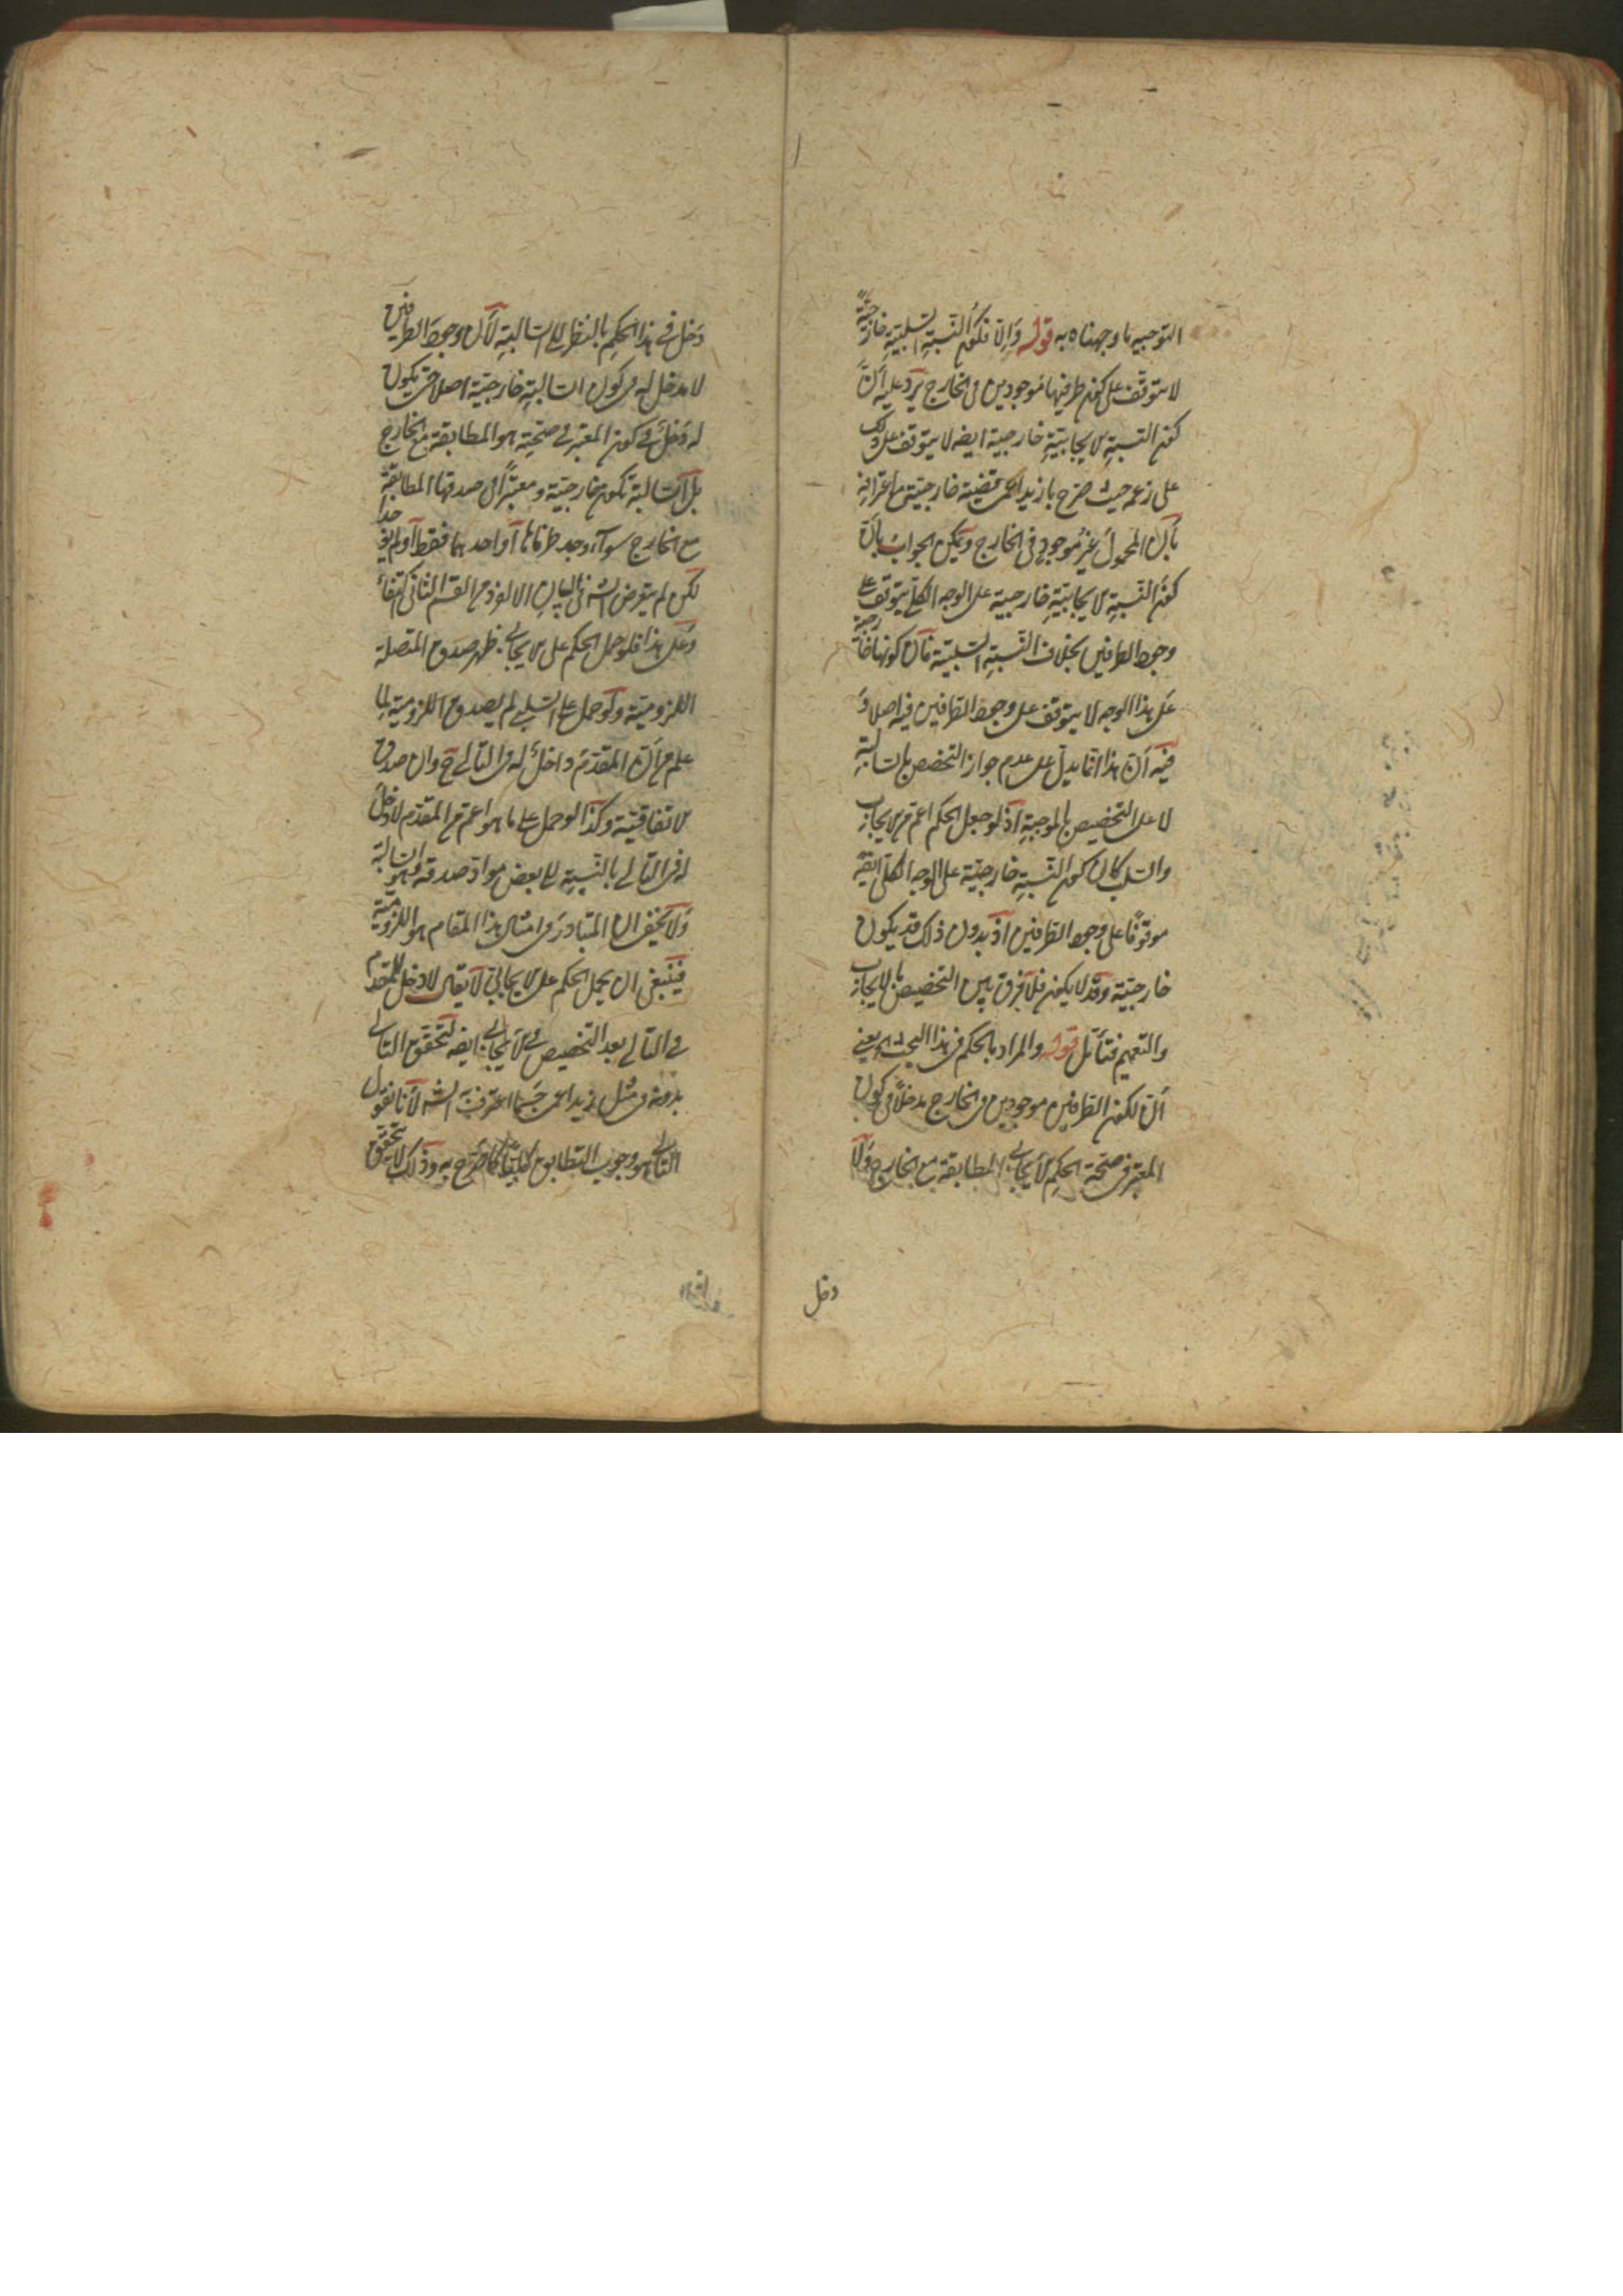 التوجيه ما وجهناه به قوله والا فكون النسبة السلبية خارجية
لا يتوقف على كون طرفيها موجودين فى الخارج يرد عليه ان
كون النسبة الايجابية خارجية ايضه لا يتوقف على ذلك
على زعمه حيث صرح بان زيد اعمى قضية خارجية مع اعترافه
بان المحمول غير موجود فى الخارج ويمكن الجواب بان
كون النسبة الايجابية خارجية على الوجه الكلى يتوقف على
وجود الطرفين بخلاف النسبة السلبية فان كونها خارجية
على هذا الوجه لا يتوقف على وجود الطرفين فيه اصلا و
فيه ان هذا انما يدل على عدم جواز التخصيص بالسالبة
لا على التخصيص بالموجبة اذ لو جعل الحكم اعم من الايجاب
والسلب كان كون النسبة خارجية على الوجه الكلى ايضه
موقوفا على وجود الطرفين اذ بدون ذلك قد يكون
خارجية وقد لا يكون فلا فرق بين التخصيص بالايجاب
والتعميم فتأمل قوله والمراد بالحكم فى هذا البحث اه يعنى
ان لكون الطرفين موجودين فى الخارج مدخلا فى كون
المعتبر فى صحة الحكم الايجابى المطابقة مع الخارج ولا
دخل
دخل فى هذا الحكم بالنظر الى السالبة لان وجود الطرفين
لا مدخل له فى كون السالبة خارجية اصلا حتى يكون
له دخل فى كون المعتبر فى صحته هو المطابقة مع الخارج
بل السالبة تكون خارجية ومعتبرا فى صدقها المطابقة
مع الخارج سواء وجد طرفاها او احدهما فقط او لم يوجدا
لكن لم يتعرض الشه فى البيان الا لفرد من القسم الثانى اكتفاء
وعلى هذا فلو حمل الحكم على الايجابى ظهر صدق المتصلة
اللزومية ولو حمل على السلبى لم يصدق اللزومية لما
علم من ان المقدم داخل له فى التالى ح وان صدق
الاتفاقية وكذا لو حمل على ما هو اعم من المقدم لا دخل
له فى التالى بالنسبة الى بعض مواد صدقه وهو السالبة
ولا يخفى ان المتبادر فى امثال هذا المقام هو اللزومية
فينبغى ان يحمل الحكم على الايجابى لا يقال لا دخل للمقدم
فى التالى بعد التخصيص فى الايجابى ايضه لتحقق التالى
بدونه فى مثل زيد اعمى حسبما اعترف به الشه لانا نقول
التالى هو وجوب التطابق كليا كما صرح به وذلك لا يتحقق